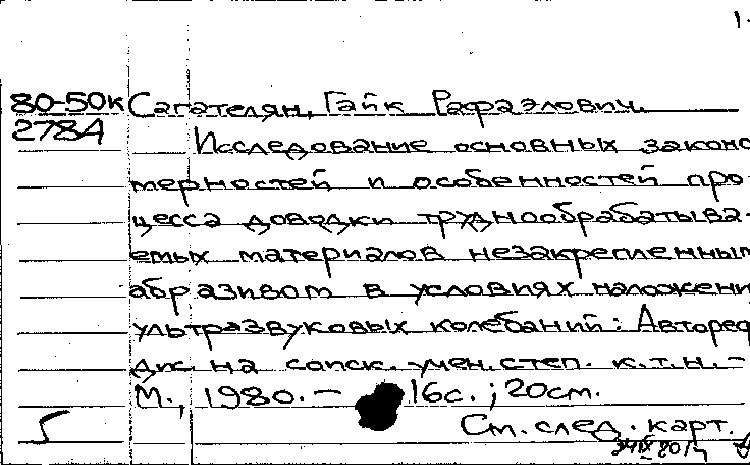 80-50к Сагателян, Гайк Рафаэлович.
278А Исследование основных законо
мерностей и особенностей про
цесса доводки труднообрабатыва-
емых материалов незакрепленным
абразивом в условиях наложени
ультразвуковых колебаний: Авторед
дис. на соиск. учен. степ. к.т.н. –
М., 1980. – 16с.; 20см.
См. след. карт.